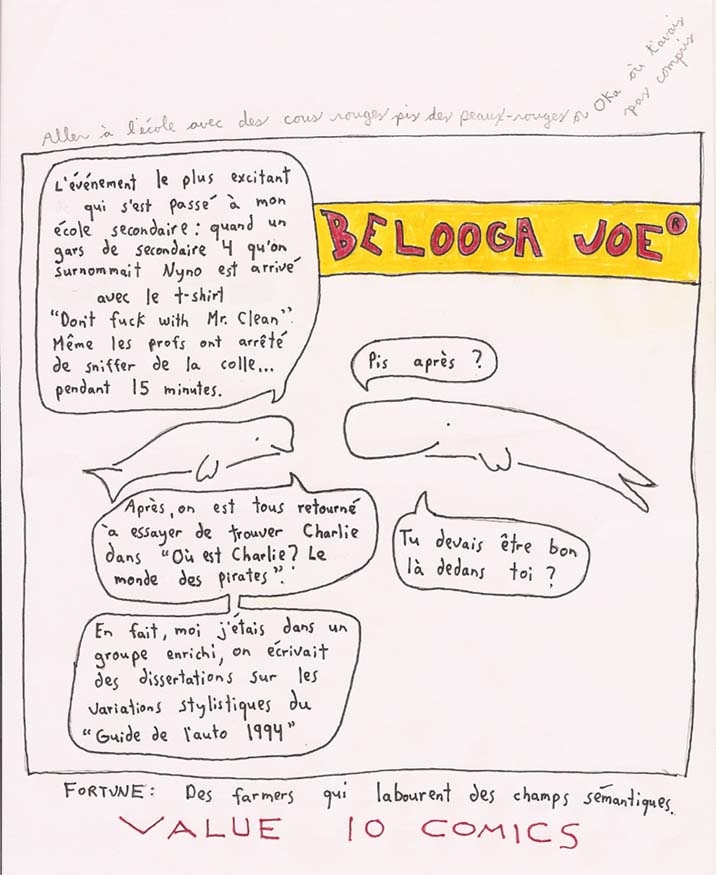 Aller à l'école avec des cous rouges pis des peaux-rouges ou Oka où t'avais
pas compris
L'événement le plus excitant
qui s'est passé à mon
école secondaire : quand un
gars de secondaire 4 qu'on
surnommait Nyno est arrivé
avec le t-shirt
"Don't fuck with Mr. Clean".
Même les profs ont arrêté
de sniffer de la colle...
pendant 15 minutes.
BELOOGA JOE®
Pis après ?
Après, on est tous retourné
à essayer de trouver Charlie
dans "Où est Charlie? Le
monde des pirates".
Tu devais être bon
là dedans toi ?
En fait, moi j'étais dans un
groupe enrichi, on écrivait
des dissertations sur les
variations stylistiques du
"Guide de l'auto 1994"
FORTUNE : Des farmers qui labourent des champs sémantiques.
VALUE 10 COMICS